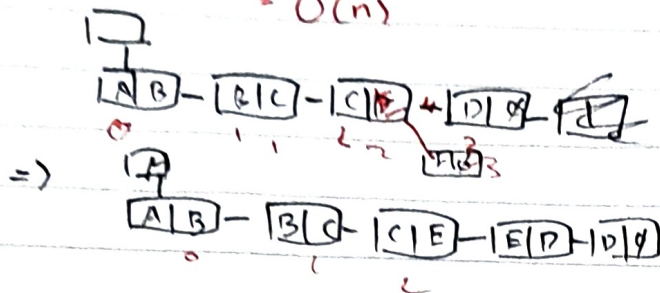 O(n)
A B - B C - C E D ∅
0 1 1 2 2 3 3
=> A
A B - B C - C E - E D - D ∅
0 1 2